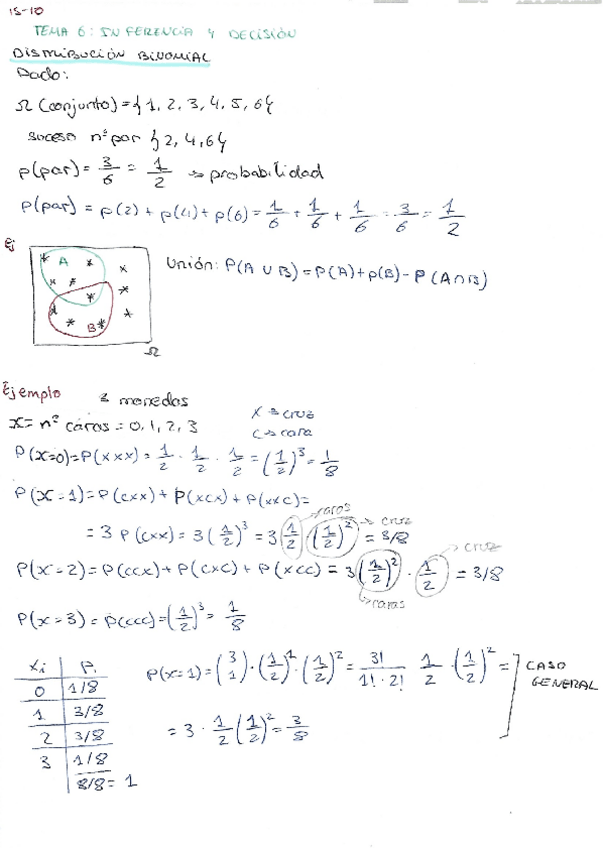 15-10
TEMA 6: INFERENCIA Y DECISIÓN
DISTRIBUCIÓN BINOMIAL
Dado:
Ω (conjunto) = {1, 2, 3, 4, 5, 6}
suceso nº par {2, 4, 6}
p(par) = 3/6 = 1/2 → probabilidad
p(par) = p(2) + p(4) + p(6) = 1/6 + 1/6 + 1/6 = 3/6 = 1/2
Ej
A
B
Ω
Unión: P(A ∪ B) = P(A) + p(B) - P(A ∩ B)
Ejemplo 3 monedas
x = nº caras = 0, 1, 2, 3
X → cruz
C → cara
P(x=0) = P(xxx) = 1/2 · 1/2 · 1/2 = (1/2)^3 = 1/8
P(x=1) = P(cxx) + P(xcx) + P(xxc) =
= 3 P(cxx) = 3(1/2)^3 = 3(1/2)(1/2)^2 = 3/8
caras
cruz
P(x=2) = P(ccx) + P(cxc) + P(xcc) = 3(1/2)^2 · 1/2 = 3/8
cruz
caras
P(x=3) = P(ccc) = (1/2)^3 = 1/8
xi | Pi
0 | 1/8
1 | 3/8
2 | 3/8
3 | 1/8
8/8 = 1
P(x=1) = (3 1) · (1/2)^1 · (1/2)^2 = 3!/1!·2! 1/2 · (1/2)^2 =
= 3 · 1/2 (1/2)^2 = 3/8
CASO
GENERAL